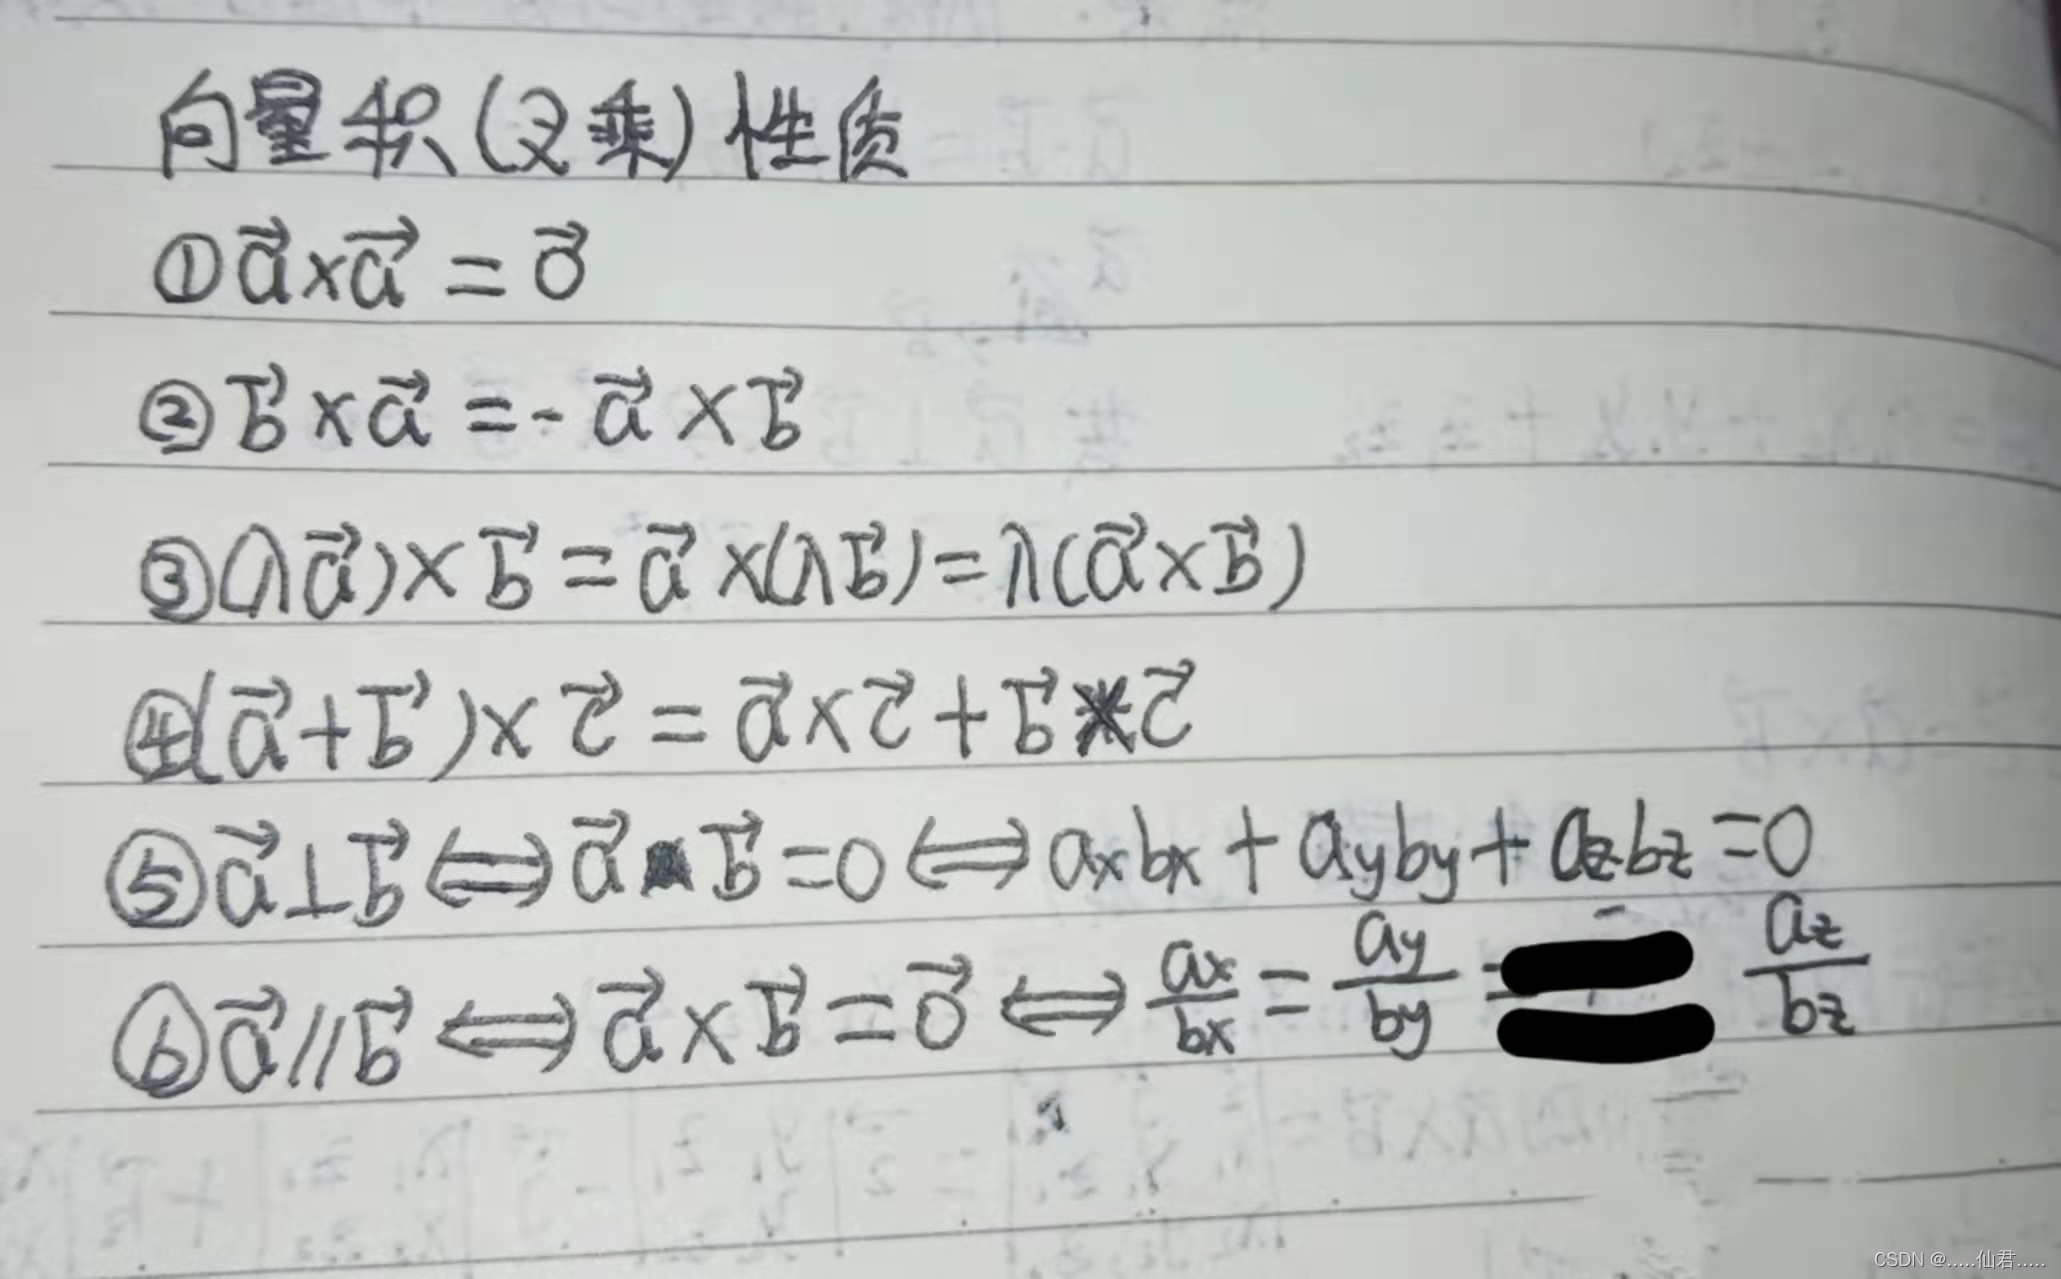 向量积(叉乘)性质
① a⃗×a⃗ = 0⃗
② b⃗×a⃗ = -a⃗×b⃗
③ (λa⃗)×b⃗ = a⃗×(λb⃗) = λ(a⃗×b⃗)
④ (a⃗+b⃗)×c⃗ = a⃗×c⃗+b⃗×c⃗
⑤ a⃗⊥b⃗ ⟺ a⃗·b⃗=0 ⟺ axbx+ayby+azbz=0
⑥ a⃗//b⃗ ⟺ a⃗×b⃗=0⃗ ⟺ ax/bx = ay/by = az/bz
CSDN @.....仙君.....